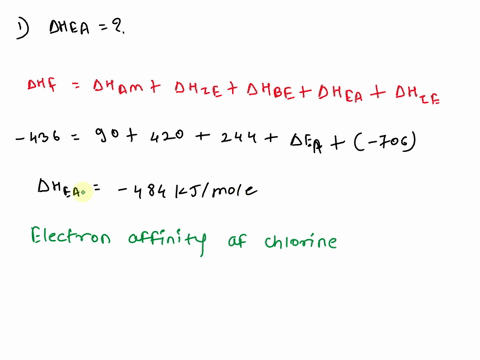 1) ΔHEA = ?.
ΔHf = ΔHAm + ΔHIE + ΔHBE + ΔHEA + ΔHIE
-436 = 90 + 420 + 244 + ΔEA + (-706)
ΔHEA = -484 kJ/mole
Electron affinity af chlorine